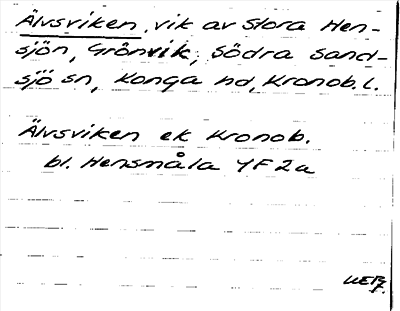 Älvsviken, vik av Stora Hen-
sjön, Grönvik, Södra Sand-
sjö sn, Konga hd, Kronob. l.
Älvsviken ek Kronob.
bl. Hensmåla 4F 2a